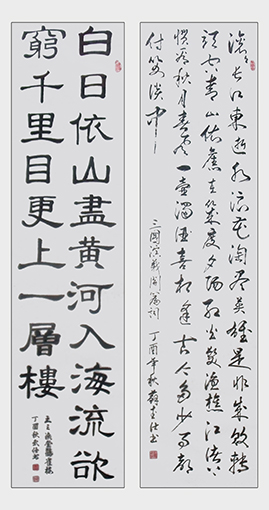 滚滚长江東逝水浪花淘尽英雄是非成敗轉
頭空青山依舊在幾度夕陽红白髮漁樵江渚上
慣看秋月春風一壺濁酒喜相逢古今多少事都
付笑談中
三國演義開篇詞 丁酉年秋
白日依山盡黄河入海流欲
窮千里目更上一層樓
王之渙登鸛雀樓
丁酉秋